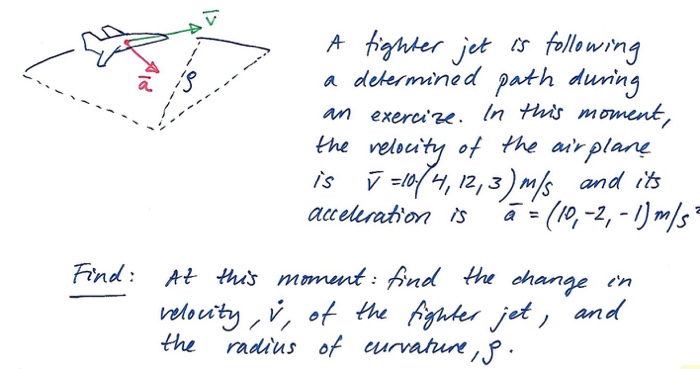 v̄
ā
ρ
A fighter jet is following
a determined path during
an exercize. In this moment,
the velocity of the airplane
is v̄ = 10·(4, 12, 3) m/s and its
acceleration is ā = (10, -2, -1) m/s²
Find: At this moment: find the change in
velocity, v̇, of the fighter jet, and
the radius of curvature, ρ.